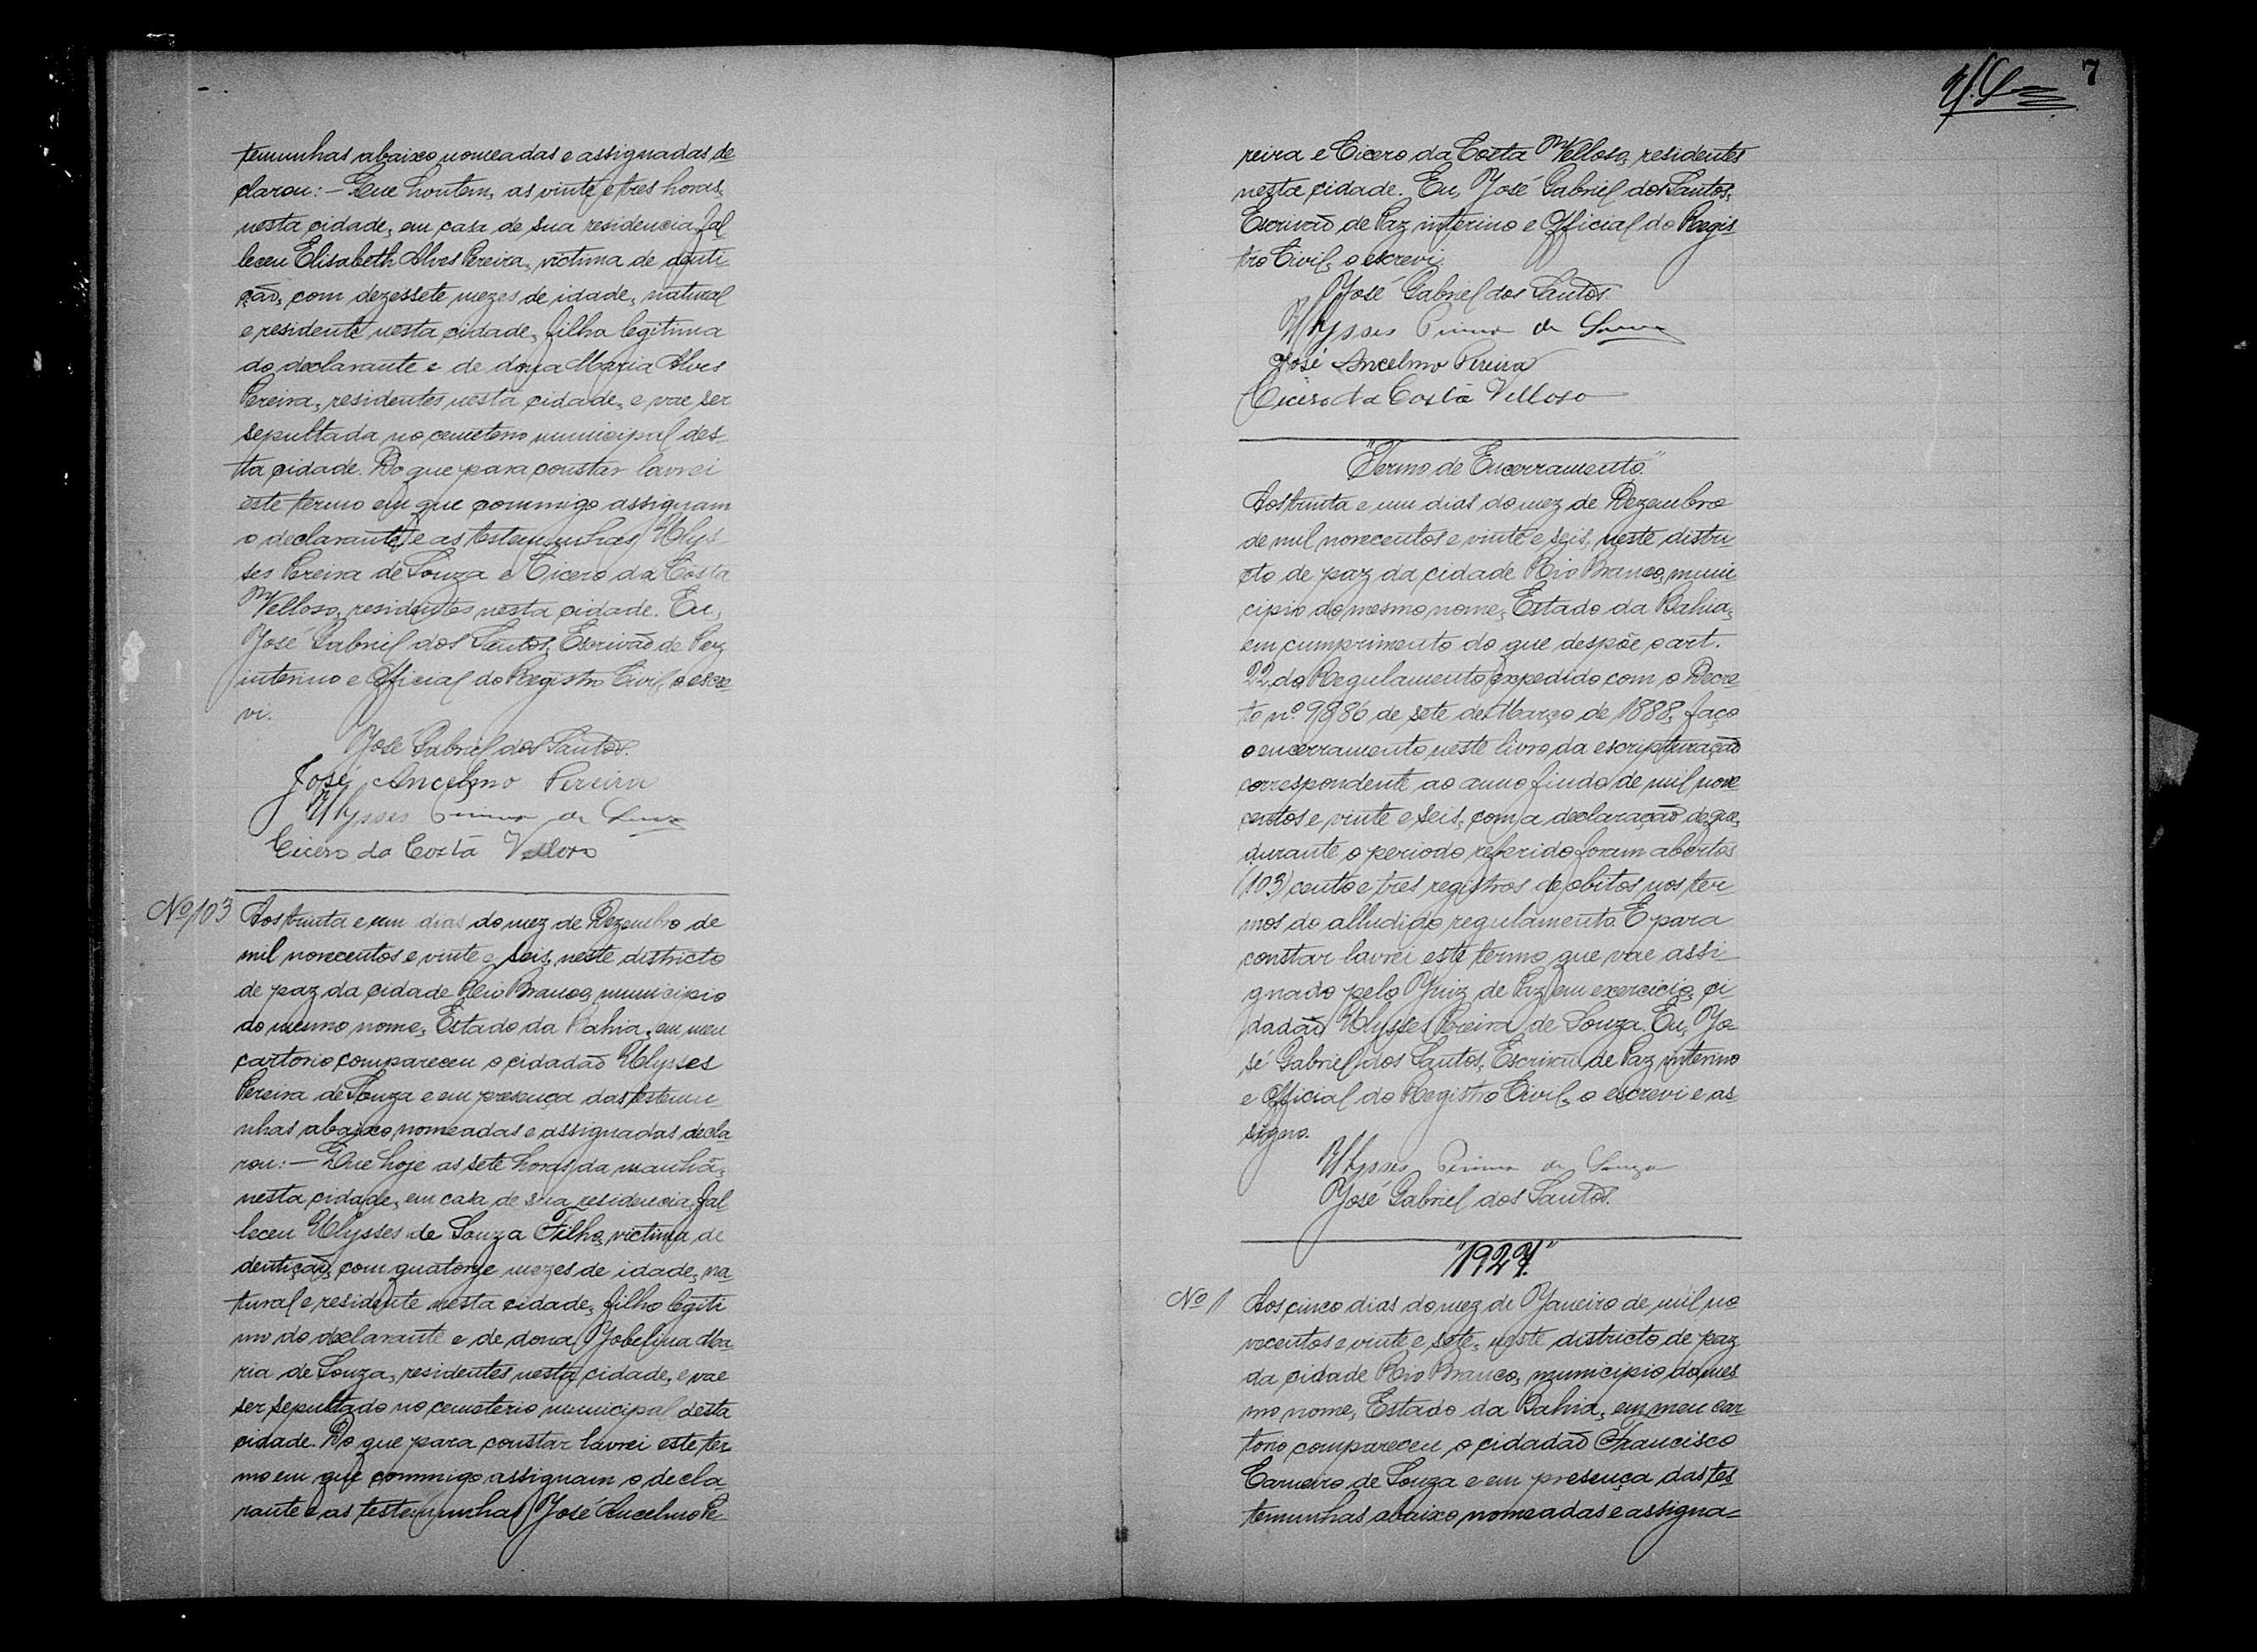 temunhas abaixo nomeadas e assignadas de
clarou: — Que hontem, as vinte e tres horas,
nesta cidade, em casa de sua residencia, fal-
leceu Elisabeth Alves Pereira, victima de denti-
ção, com dezessete mezes de idade, natural
e residente nesta cidade, filha legitima
do declarante e de dona Maria Alves
Pereira, residentes nesta cidade, e vae ser
sepultada no cemeterio municipal des-
ta cidade. Do que para constar lavrei
este termo em que commigo assignam
o declarante e as testemunhas Ulys-
ses Pereira de Souza e Cicero da Costa
Velloso, residentes nesta cidade. Eu,
José Gabriel dos Santos, Escrivão de Paz
interino e Official do Registro Civil, o escre-
vi.
José Gabriel dos Santos.
José Ancelmo Pereira
Ulysses Pereira de Souza
Cicero da Costa Velloso
Nº 103 Aos trinta e um dias do mez de Dezembro de
mil novecentos e vinte e seis, neste districto
de paz da cidade Rio Branco, municipio
do mesmo nome, Estado da Bahia, em meu
cartorio compareceu o cidadão Ulysses
Pereira de Souza e em presença das testemu-
nhas abaixo nomeadas e assignadas decla
rou: — Que hoje as sete horas da manhã,
nesta cidade, em casa de sua residencia, fal-
leceu Ulysses de Souza Filho, victima de
dentição, com quatorze mezes de idade, na-
tural e residente nesta cidade, filho legiti
mo do declarante e de dona Jobelina Ma-
ria de Souza, residentes nesta cidade, e vae
ser sepultado no cemeterio municipal desta
cidade. Do que para constar lavrei este ter-
mo em que commigo assignam o decla-
rante e as testemunhas José Ancelmo Pe-
7
reira e Cicero da Costa Velloso, residentes
nesta cidade. Eu, José Gabriel dos Santos,
Escrivão de Paz interino e Official do Regis-
tro Civil, o escrevi.
José Gabriel dos Santos.
Ulysses Pereira de Souza
José Ancelmo Pereira
Cicero da Costa Velloso
"Termo de Encerramento."
Aos trinta e um dias do mez de Dezembro
de mil novecentos e vinte e seis, neste distri-
cto de paz da cidade Rio Branco, muni-
cipio do mesmo nome, Estado da Bahia,
em cumprimento do que despõe o art.
22 do Regulamento expedido com o Decre-
to nº 9886 de sete de Março de 1888, faço
o encerramento neste livro da escripturação
correspondente ao anno findo de mil nove
centos e vinte e seis, com a declaração de que,
durante o periodo referido foram abertos
(103) cento e tres registros de obitos nos ter-
mos do alludido regulamento. E para
constar lavrei este termo que vae assi-
gnado pelo Juiz de Paz em exercicio, ci-
dadão Ulysses Pereira de Souza. Eu, Jo-
sé Gabriel dos Santos, Escrivão de Paz interino
e Official do Registro Civil, o escrevi e as-
signo.
Ulysses Pereira de Souza
José Gabriel dos Santos.
"1927."
Nº 1 Aos cinco dias do mez de Janeiro de mil no-
vecentos e vinte e sete, neste districto de paz
da cidade Rio Branco, municipio do mes-
mo nome, Estado da Bahia, em meu car-
torio compareceu o cidadão Francisco
Carneiro de Souza e em presença das tes-
temunhas abaixo nomeadas e assigna-